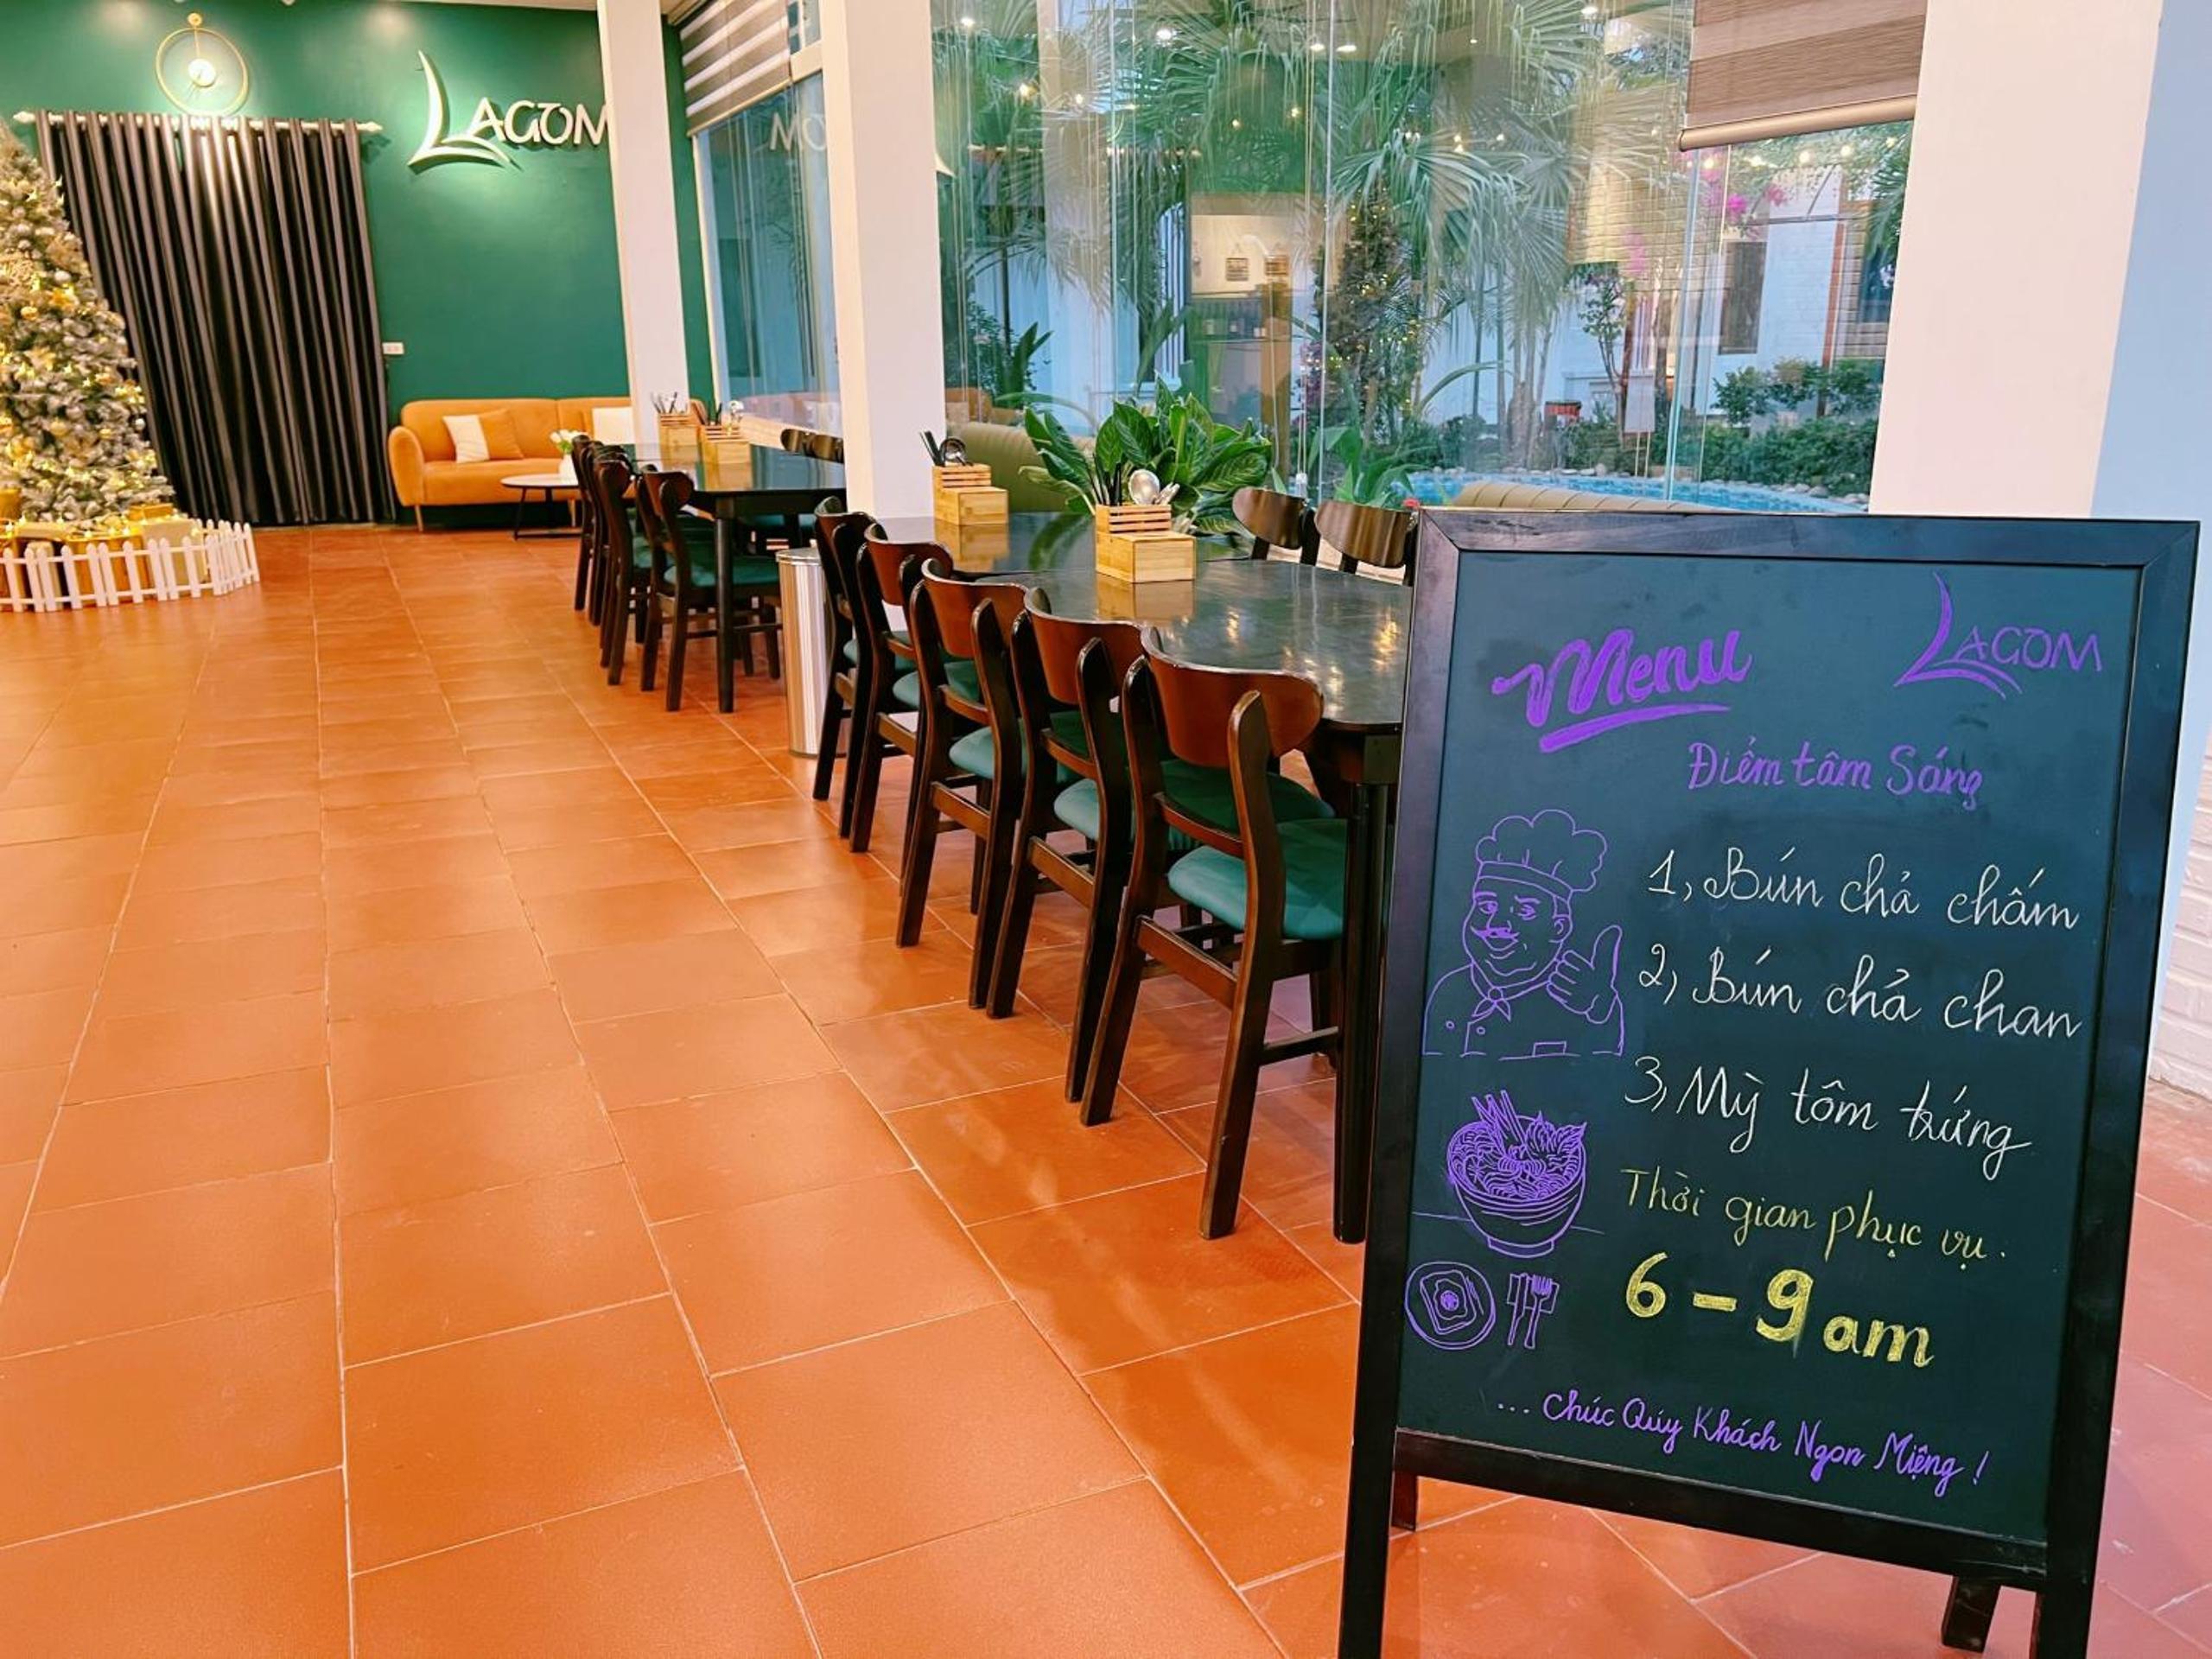 LAGOM
Menu
LAGOM
Điểm tâm Sáng
1, Bún chả chấm
2, Bún chả chan
3, Mỳ tôm trứng
Thời gian phục vụ.
6 - 9 am
... Chúc Qúy Khách Ngon Miệng !